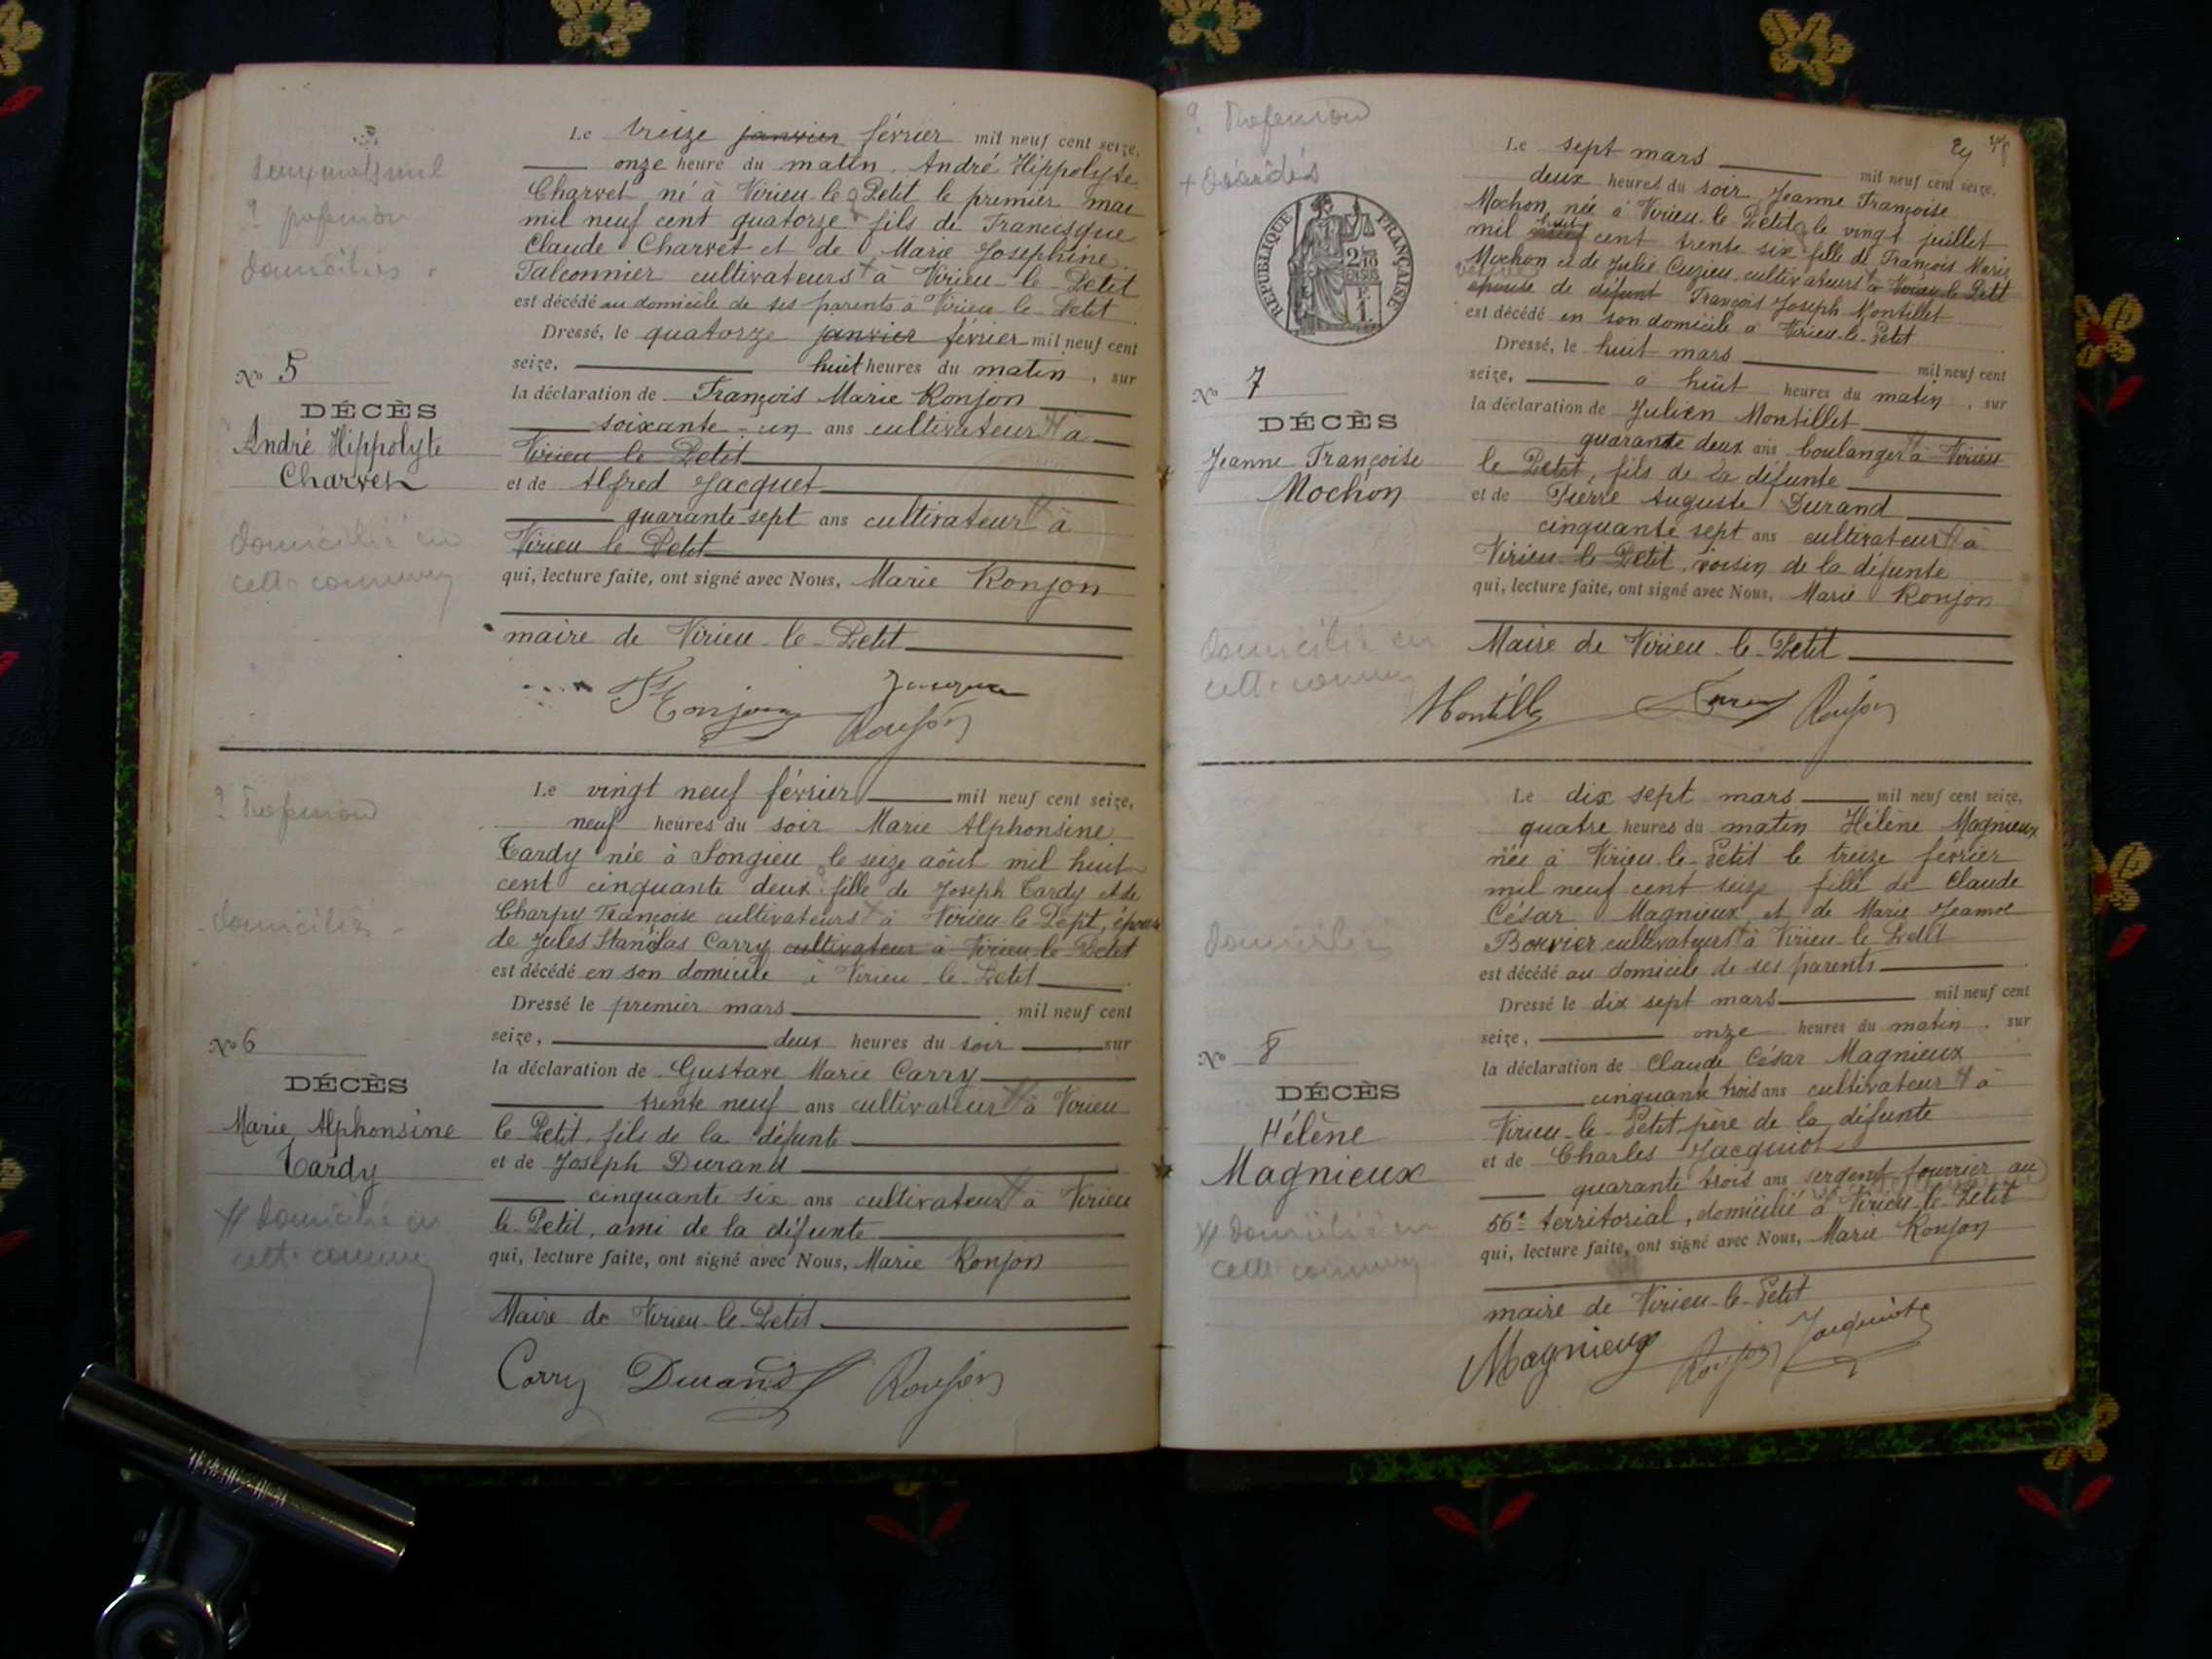 deux mots nul
? profession
domiciliés
Nº 5
DÉCÈS
André Hippolyte
Charvet
domicilié en
cette commune
Le treize janvier février mil neuf cent seize,
onze heure du matin. André Hippolyte
Charvet né à Virieu-le-Petit le premier mai
mil neuf cent quatorze fils de Francisque
Claude Charvet et de Marie Josephine
Falconnier cultivateurs à Virieu-le-Petit
est décédé au domicile de ses parents à Virieu-le-Petit
Dressé, le quatorze janvier février mil neuf cent
seize, huit heures du matin, sur
la déclaration de François Marie Ronjon
soixante-un ans cultivateur à
Virieu le Petit
et de Alfred Jacquet
quarante-sept ans cultivateur à
Virieu le Petit
qui, lecture faite, ont signé avec Nous, Marie Ronjon
maire de Virieu-le-Petit
Ronjon
Ronjon
? Profession
domiciliés
Nº 6
DÉCÈS
Marie Alphonsine
Tardy
# domicilié en
cette commune
Le vingt neuf février mil neuf cent seize,
neuf heures du soir Marie Alphonsine
Tardy née à Songieu le seize août mil huit
cent cinquante deux fille de Joseph Tardy et de
Charpy Françoise cultivateurs à Virieu-le-Petit, épouse
de Jules Stanislas Carry cultivateur à Virieu-le-Petit
est décédé en son domicile à Virieu-le-Petit
Dressé le premier mars mil neuf cent
seize, deux heures du soir sur
la déclaration de Gustave Marie Carry
trente neuf ans cultivateur à Virieu
le Petit, fils de la défunte
et de Joseph Durand
cinquante six ans cultivateur à Virieu
le Petit, ami de la défunte
qui, lecture faite, ont signé avec Nous, Marie Ronjon
Maire de Virieu-le-Petit
Carry Durand Ronjon
? Profession
+ décédés
RÉPUBLIQUE FRANÇAISE
2/10 EN SUS
1 F.
Nº 7
DÉCÈS
Jeanne Françoise
Mochon
domicilié en
cette commune
Le sept mars mil neuf cent seize,
deux heures du soir Jeanne Françoise
Mochon née à Virieu-le-Petit le vingt juillet
mil huit cent trente six fille de François Marie
Mochon et de Julie Cuzieu cultivateurs à Virieu-le-Petit
veuve
épouse de défunt François Joseph Montillet
est décédé en son domicile à Virieu-le-Petit
Dressé, le huit mars mil neuf cent
seize, à huit heures du matin, sur
la déclaration de Julien Montillet
quarante deux ans boulanger à Virieu
le Petit, fils de la défunte
et de Pierre Auguste Durand
cinquante sept ans cultivateur à
Virieu-le-Petit, voisin de la défunte
qui, lecture faite, ont signé avec Nous, Marie Ronjon
Maire de Virieu-le-Petit
Montillet Ronjon
domiciliés
Nº 8
DÉCÈS
Hélène
Magnieux
# domicilié en
cette commune
Le dix sept mars mil neuf cent seize,
quatre heures du matin Hélène Magnieux
née à Virieu-le-Petit le treize février
mil neuf cent seize fille de Claude
César Magnieux et de Marie Jeanne
Bouvier cultivateurs à Virieu-le-Petit
est décédé au domicile de ses parents
Dressé le dix sept mars mil neuf cent
seize, onze heures du matin, sur
la déclaration de Claude César Magnieux
cinquante trois ans cultivateur à
Virieu-le-Petit père de la défunte
et de Charles Jacquiot
quarante trois ans sergent fourrier au
56e territorial, domicilié à Virieu-le-Petit
qui, lecture faite, ont signé avec Nous, Marie Ronjon
maire de Virieu-le-Petit
Magnieux Ronjon Jacquiot